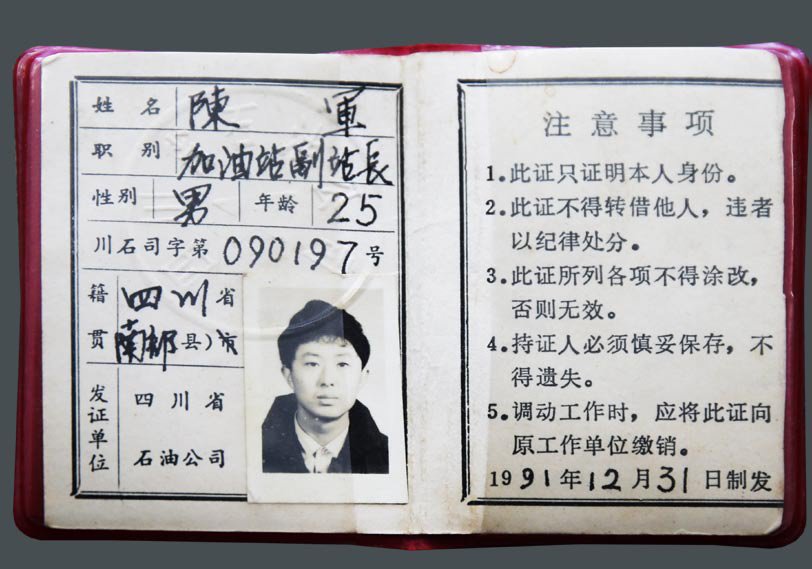 姓名 陳軍
职别 加油站副站長
性别 男 年龄 25
川石司字第090197号
籍贯 四川省
南部县)市
发证单位 四川省
石油公司
注意事项
1.此证只证明本人身份。
2.此证不得转借他人，违者
以纪律处分。
3.此证所列各项不得涂改，
否则无效。
4.持证人必须慎妥保存，不
得遗失。
5.调动工作时，应将此证向
原工作单位缴销。
1991年12月31日制发